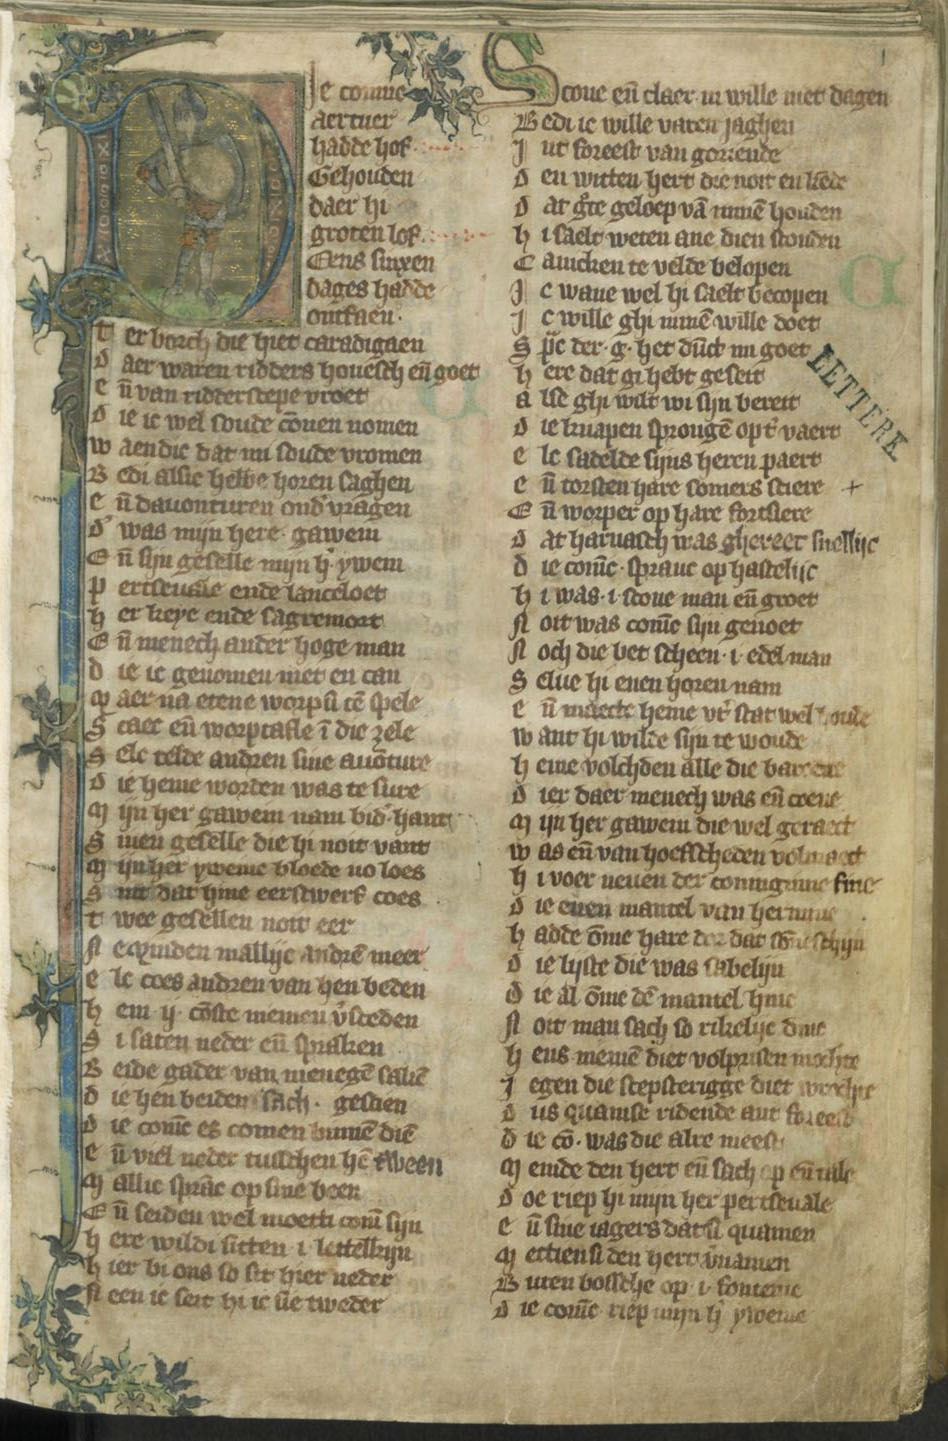 Die coninc
aertuer
hadde hof
Gehouden
daer hi
groten lof
Eens sinxen
dages hadde
ontfaen
t er borch die hiet caradigaen
d aer waren ridders houesch eñ goet
e ñ van ridderscepe vroet
d ie ic wel soude cōnen nomen
w aendic dat mi soude vromen
B edi alsic hebbe horen saghen
e ñ dauonturen ond' vraghen
d' was mijn here gawein
E ñ sijn geselle mijn h' ywein
p ertseuale ende lanceloet
h er keye ende sagremort
E ñ menech ander hoge man
d ie ic genomen niet en can
M aer na etene worpsi tē spele
S caec eñ worptafle ī die zele
S elc telde andren sine auōture
d ie heme worden was te sure
M ijn her gawein nam bid' hant
S inen geselle die hi noit vant
M ijn her yweine bloede no loes
S int dat hine eerstwerf coes
t wee gesellen noit eer
N e mīnden mallijc andrē meer
e lc coes andren van hen beden
h em ij cōste niemen v'sceden
S i saten neder eñ spraken
B eide gader van menegē saken
d ie hen beiden sach gescien
d ie coniē es comen binnē diē
e ñ viel neder tusschen hē tween
M allic sprāc op sine been
E ñ seiden wel moetti com̄ sijn
h ere wildi sitten i lettelkijn
h ier bi ons so sit hier neder
N een ic seit hi ic bē tweder
Scone eñ claer in wille met dagen
B edi ic wille varen jaghen
J nt foreest van gorriende
d en witten hert die noit en kēde
d at g'te geloep vā minē honden
h i saelt weten ane dien stonden
C anicken te velde belopen
J c wane wel hi saelt becopen
J c wille ghi minē wille doet
S p'c der .g. het dūct mi goet
h ere dat gi hebt geseit
a lse ghi wilt wi sijn bereit
d ie knapen sprongē op t' vaert
e lc sadelde sijns heren paert
e ñ torsten hare somers sciere
E ñ worpēr op hare forsiere
d at harnasch was ghereet snellijc
d ie coniē spranc op hastelijc
h i was .i. scone man eñ groet
N oit was coniē sijn genoet
N och die bet scheen .i. edel man
S elue hi enen horen nam
e ñ maecte heme vt' stat wel houde
w ant hi wilde sijn te woude
h eme volchden alle die baroene
d ier daer menech was eñ coene
M ijn her gawein die wel geraect
w as eñ van hoefscheden volmaect
h i voer neuen der coninginne fine
d ie enen mantel van hermine
h adde ōme hare
d ie lijste die was sabelijn
d ie al ōme dē mantel hinc
N oit man sach so rikelijc dinc
h ens niemē diet volprisen mochte
J egen die scepsterigge diet wrochte
d us quamse ridende ant foreest
d ie cō. was die alre meest
M einde den hert eñ sach op eñ tale
d oe riep hi mijn her pertseuale
e ñ sine iagers dat si quamen
M ettien si den hert v'namen
B uten bossche op .i. fonteine
d ie coniē riep mijn h' yweine
LETTERK
1